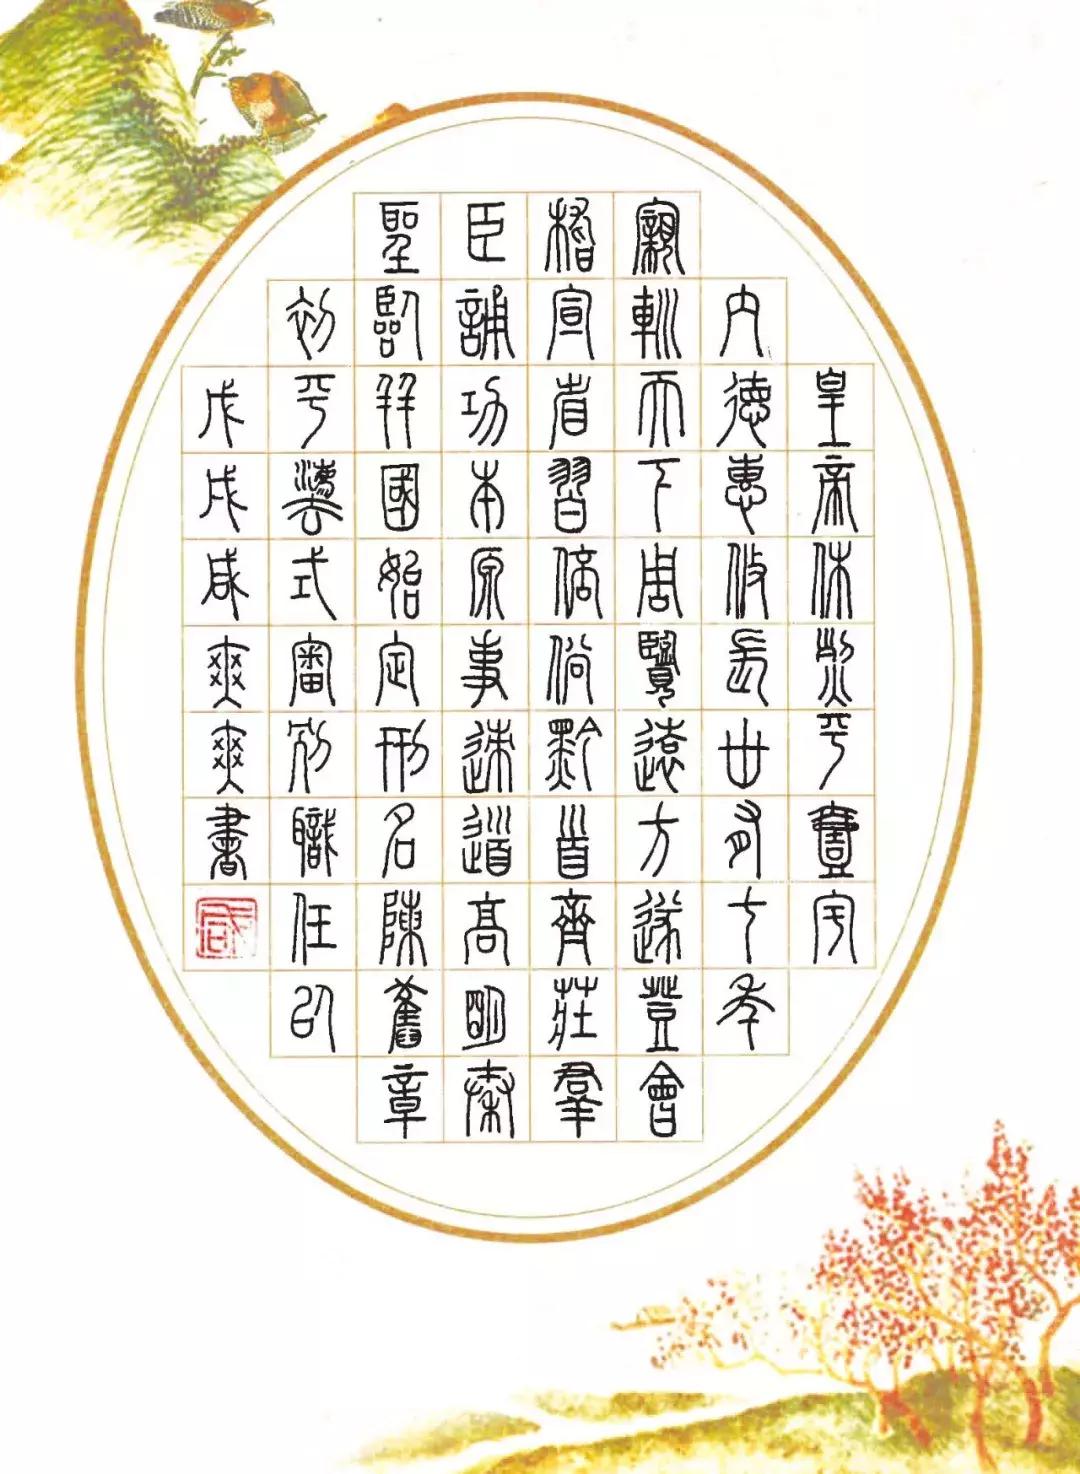 皇帝休𠛱平壹宇
內德惠攸長卅有七年
親䡅天下周覽遠方遂登會
稽宣省習俗黔首齊莊羣
臣誦功本原事速道高明秦
聖臨幷國始定刑名陳舊章
初平灋式審別職任㠯
戊戌咸爽爽書